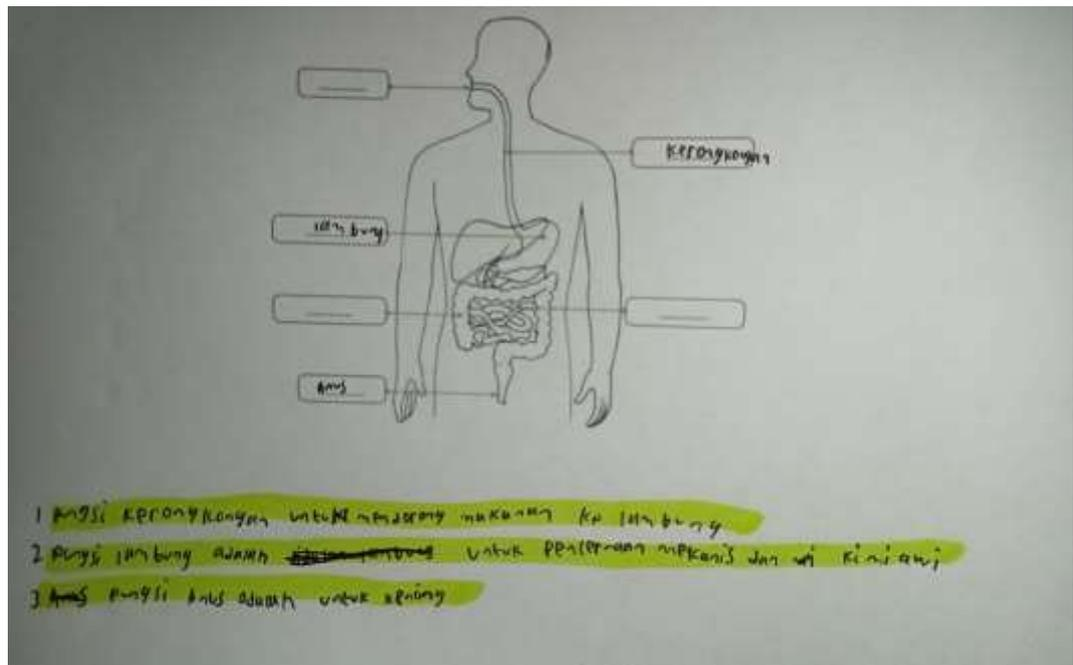 kerongkongan
lambung
Anus
1 pungsi kerongkongan untuk mendorong makanan ke lambung
2 pungsi lambung adalah untuk pencernaan mekanis dan kimiawi
3 pungsi anus adalah untuk